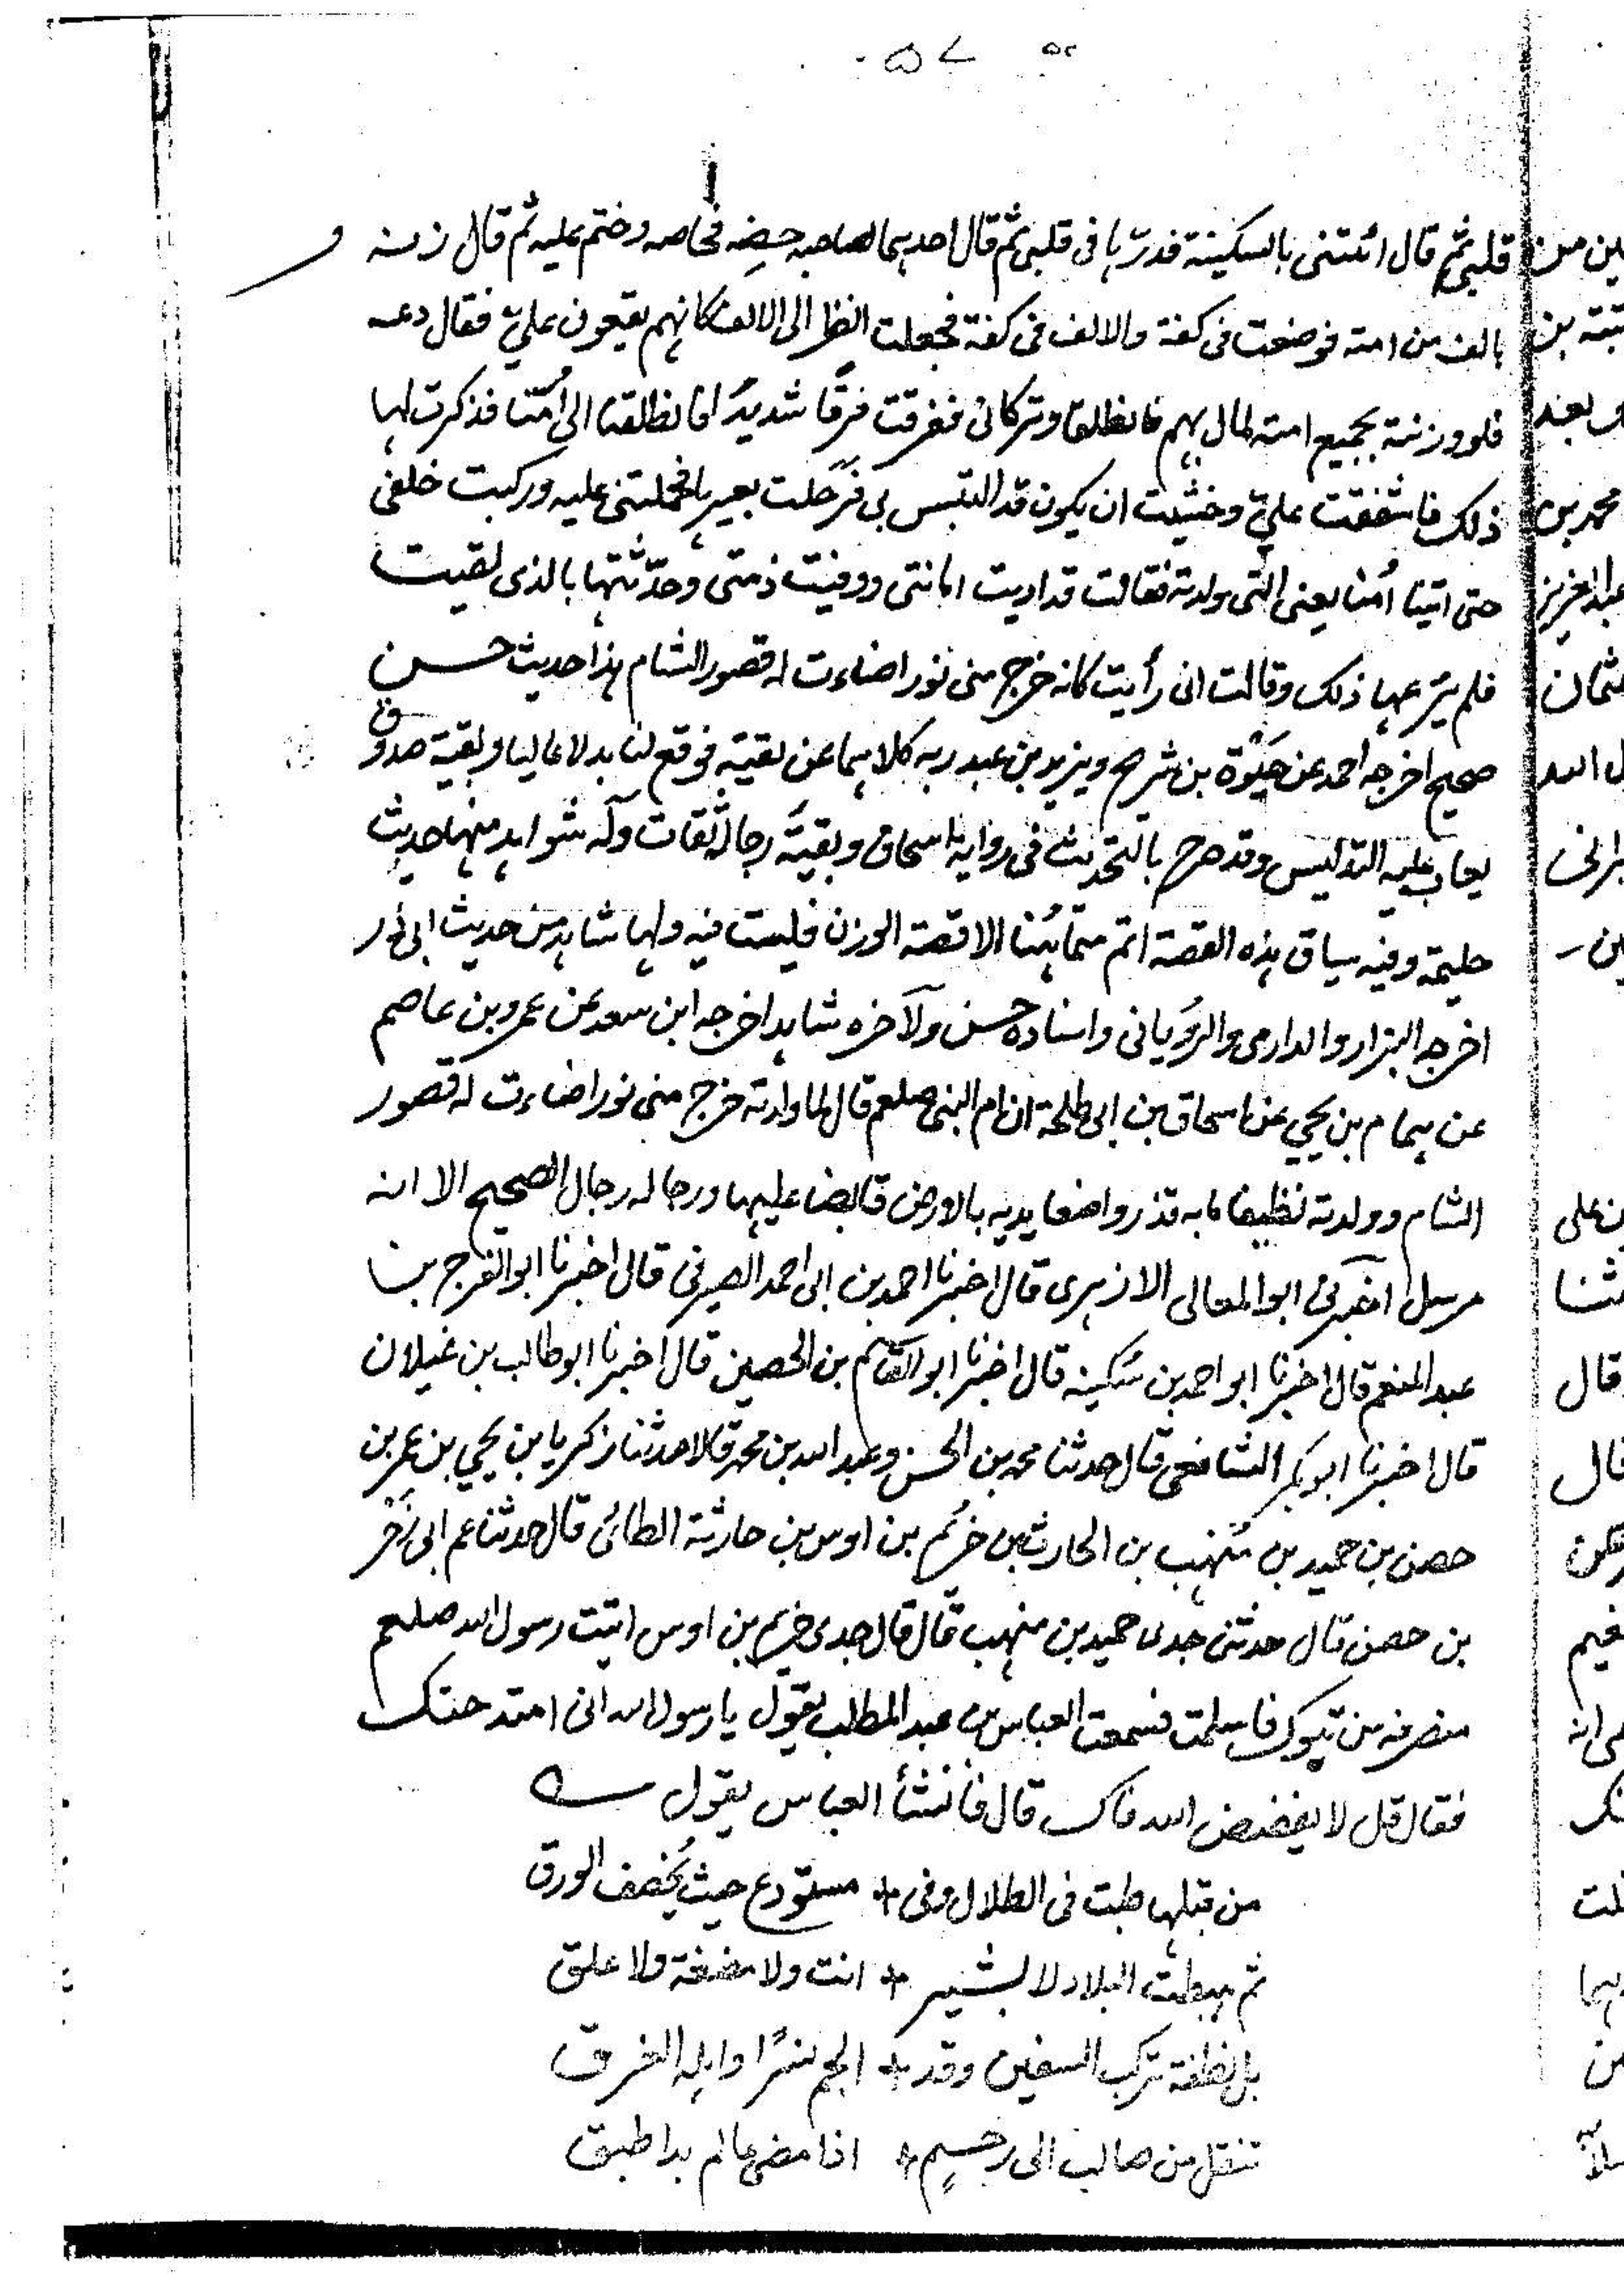 ٥٧
قلبي ثم قال ائتني بالسكينة فذرّها في قلبي ثم قال احدهما لصاحبه حصه فحاصه وختم عليه ثم قال زنه
بالف من امته فوضعت في كفة والالف في كفة فجعلت انظر الى الالف كانهم يقعون عليّ فقال دعه
فلو وزنته بجميع امته لمال بهم فانطلقا وتركاني ففرقت فرقًا شديدًا فانطلقنا الى اُمّنا فذكرت لها
ذلك فاشفقت عليّ وخشيت ان يكون قد التبس بي فرّحلت بعيرها فحملتني عليه وركبت خلفي
حتى اتينا اُمنا يعني التي ولدته فقالت قد اديت امانتي ووفيت ذمتي وحدّثتها بالذي لقيت
فلم يَرعها ذلك وقالت اني رأيت كانه خرج مني نور اضاءت له قصور الشام هذا حديث حسن
صحيح اخرجه احمد عن حَيْوَة بن شريح ويزيد بن عبد ربه كلاهما عن بقيّة فوقع لنا بدلا عاليا وبقية صدوق
يعاب عليه التدليس وقد صرح بالتحديث في رواية اسحاق وبقيّة رجاله ثقات وله شواهد منها حديث
حليمة وفيه سياق هذه القصة اتم مما هُنا الا قصة الوزن فليست فيه ولها شاهد من حديث ابي ذر
اخرجه البزار والدارمي والرُوياني واسناده حسن ولآخره شاهد اخرجه ابن سعد عن عمرو بن عاصم
عن همام بن يحيي عن اسحاق بن ابي طلحة ان ام النبي صلعم قال لما ولدته خرج مني نور اضاءت له قصور
الشام وولدته نظيفا ما به قذر واضعا يديه بالارض قابضا عليهما ورجاله رجال الصحيح الا انه
مرسل اخبرني ابو المعالي الازهري قال اخبرنا احمد بن ابي احمد الصيرفي قال اخبرنا ابو الفرج بن
عبد المنعم قال اخبرنا ابو احمد بن سُكينه قال اخبرنا ابو القاسم بن الحصين قال اخبرنا ابو طالب بن غيلان
قال اخبرنا ابو بكر الشافعي قال حدثنا محمد بن الحسن وعبد الله بن محمد قالا حدثنا زكريا بن يحيي بن عمر بن
حصن بن حميد بن مُنهب بن الحارث بن خريم بن اوس بن حارثة الطائي قال حدثنا عم ابي زَحْر
بن حصن قال حدثني جدي حميد بن منهب قال قال جدي خريم بن اوس اتيت رسول الله صلعم
منصرفه من تبوك فاسلمت فسمعت العباس بن عبد المطلب يقول يا رسول الله اني امتدحتك
فقال قل لا يفضض الله فاك قال فأنشأ العباس يقول
من قبلها طبت في الظلال وفي + مستودع حيث يُخصف الورق
ثم هبطت البلاد لا بشر + انت ولا مضغة ولا علق
بل نطفة تركب السفين وقد + الجم نسرًا واهله الغرق
تنقل من صالب الى رحمٍ + اذا مضى عالم بدا طبق